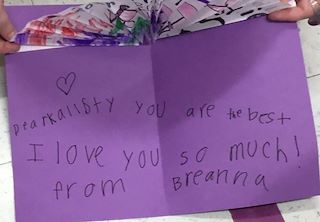 Dearkallsty you are the best
I love you so much!
from Breanna